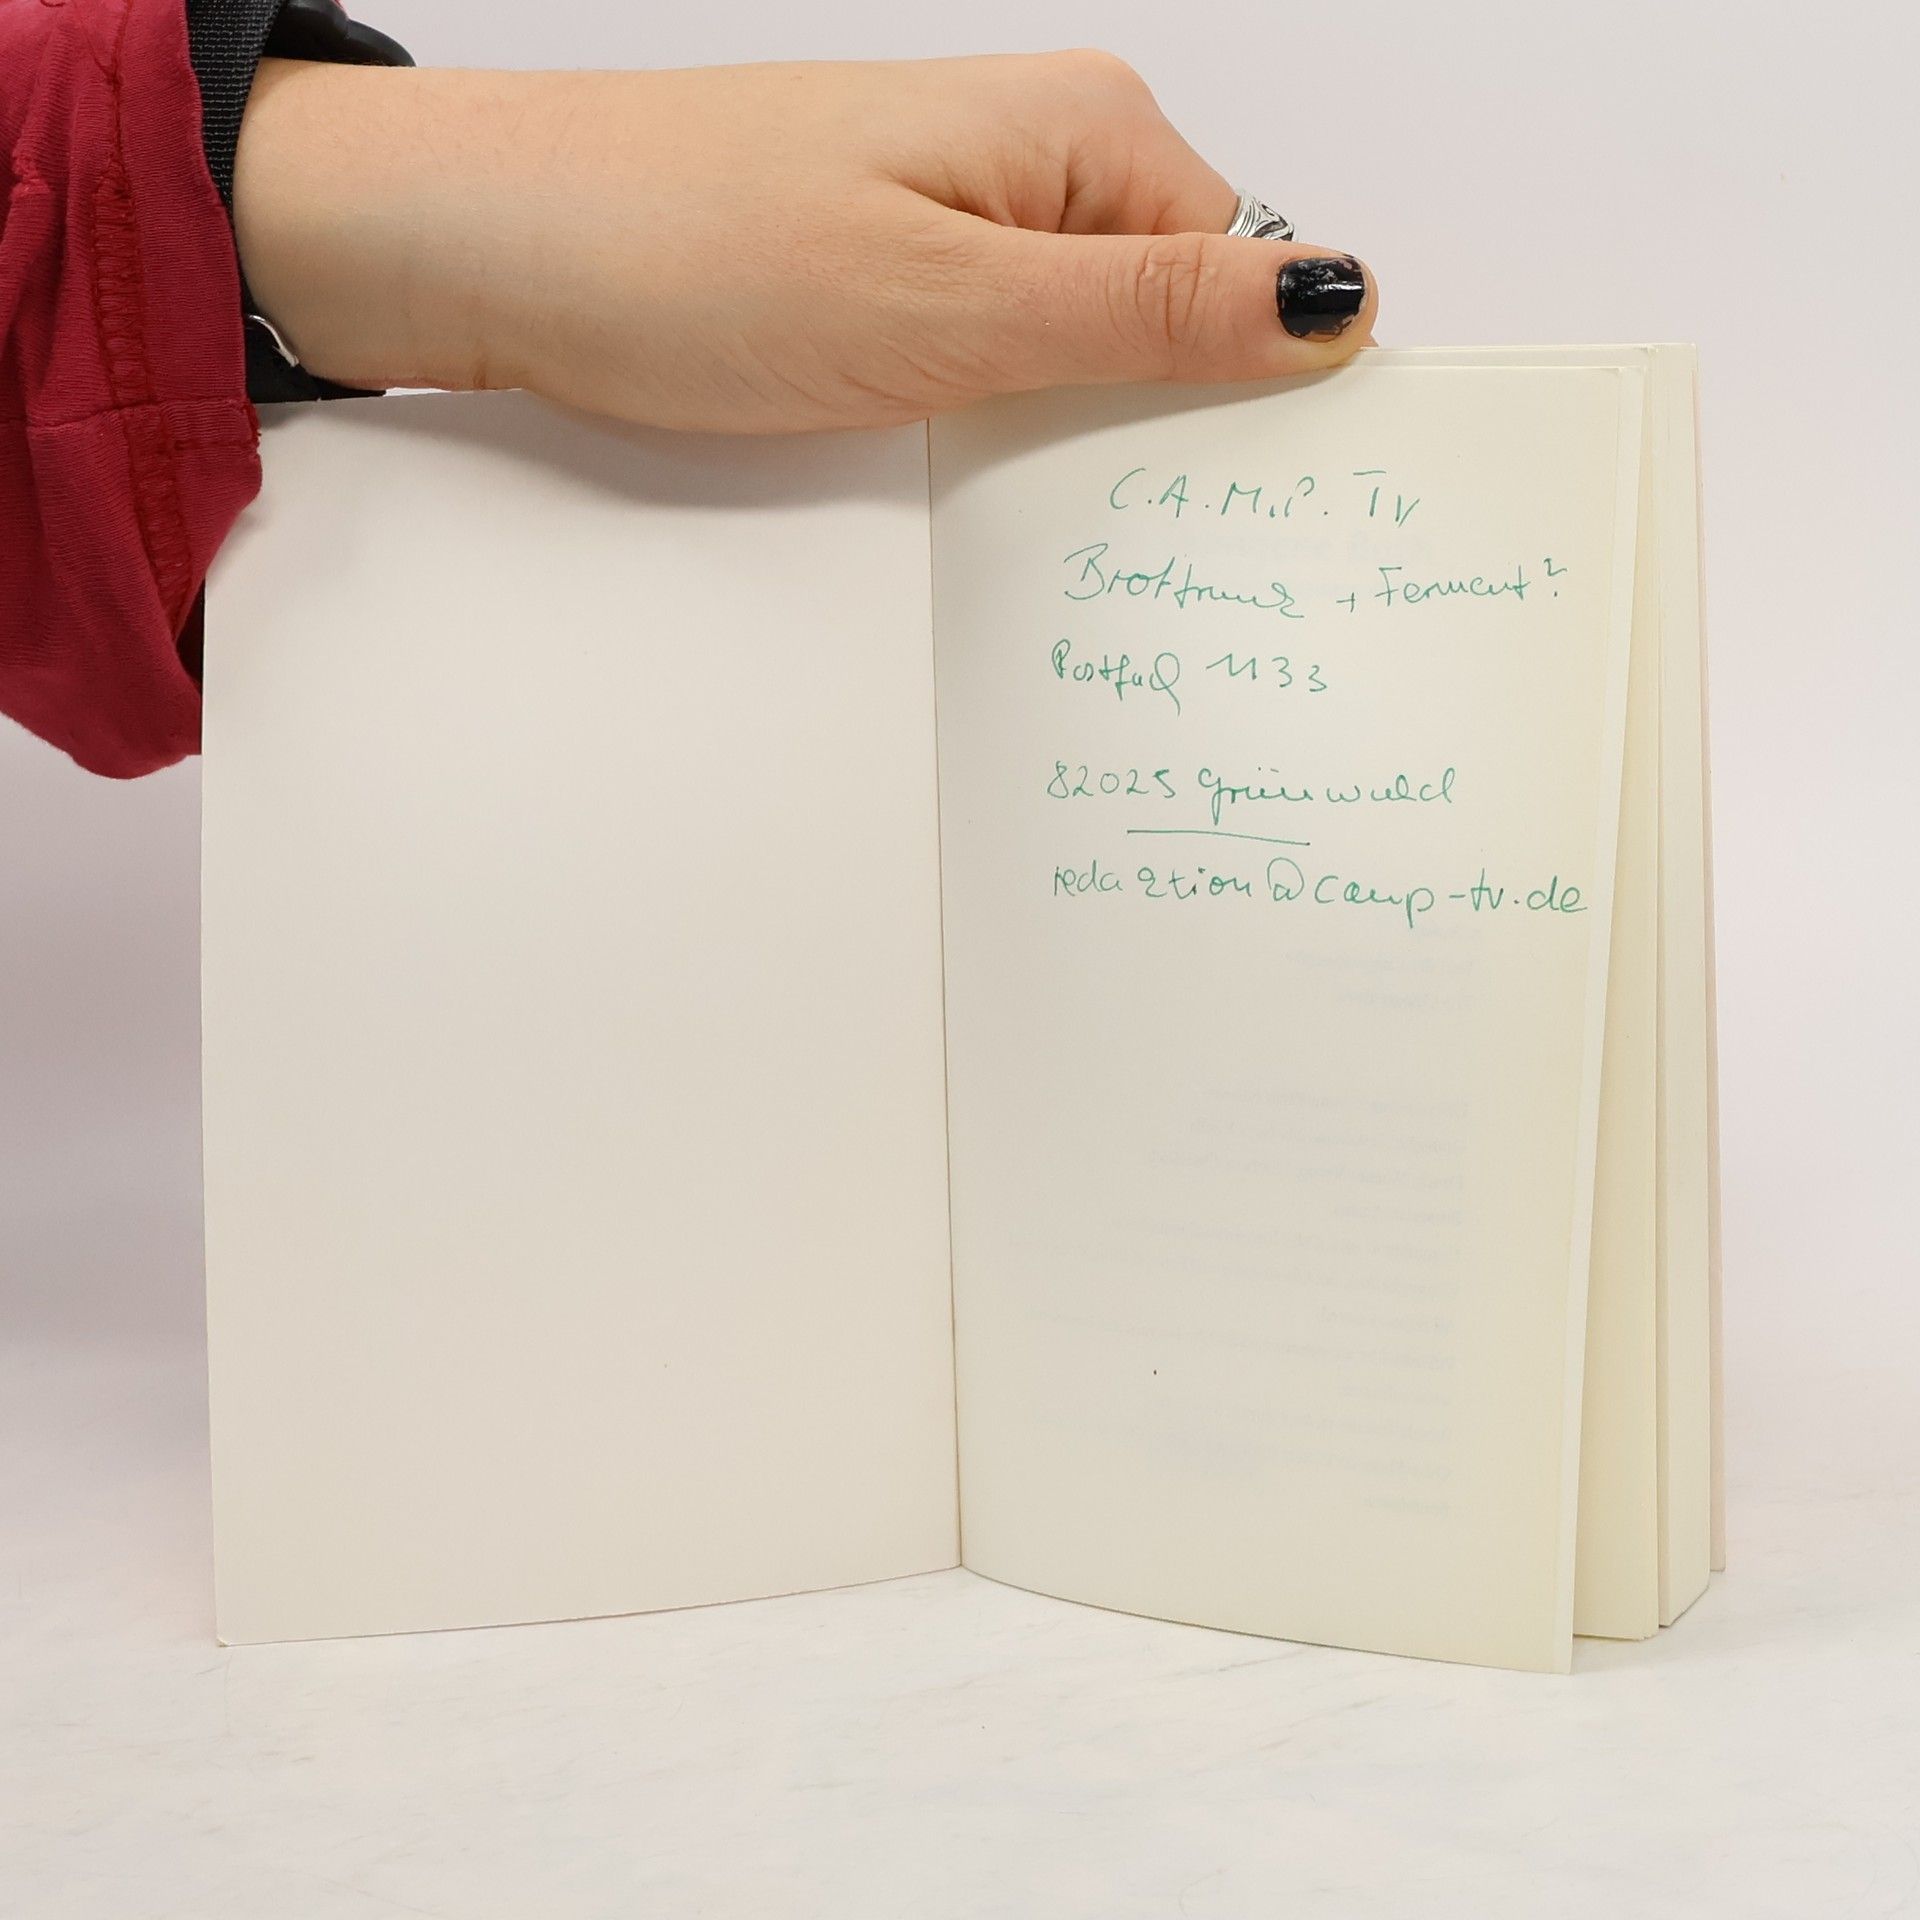 C.A.M.P. TV
Brottrunk + Ferment?
Postfach 1133
82025 Grünwald
redaktion@camp-tv.de